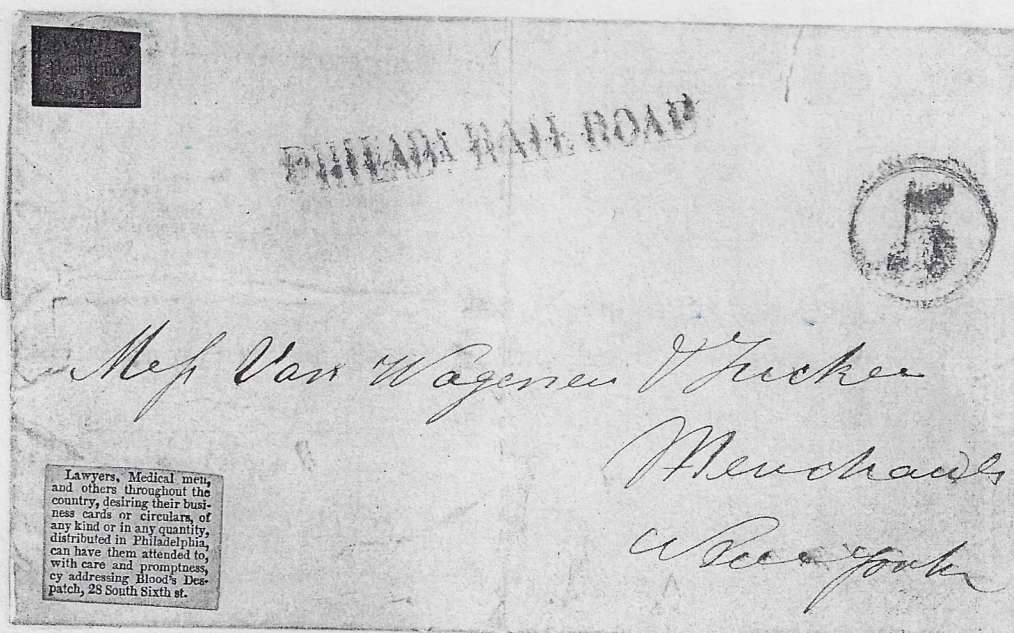 Post Office
PHILADA RAIL ROAD
5
Mess Van Wagenen & Tucker
Merchants
New York
Lawyers, Medical men,
and others throughout the
country, desiring their busi-
ness cards or circulars, of
any kind or in any quantity,
distributed in Philadelphia,
can have them attended to,
with care and promptness,
cy addressing Blood's Des-
patch, 28 South Sixth st.